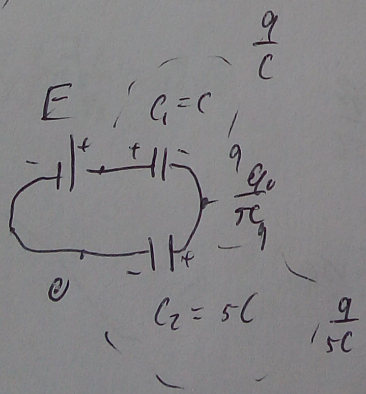 q
C
E
C₁ = C
- + + -
q
q₀
5C
q
- +
0
C₂ = 5C
q
5C